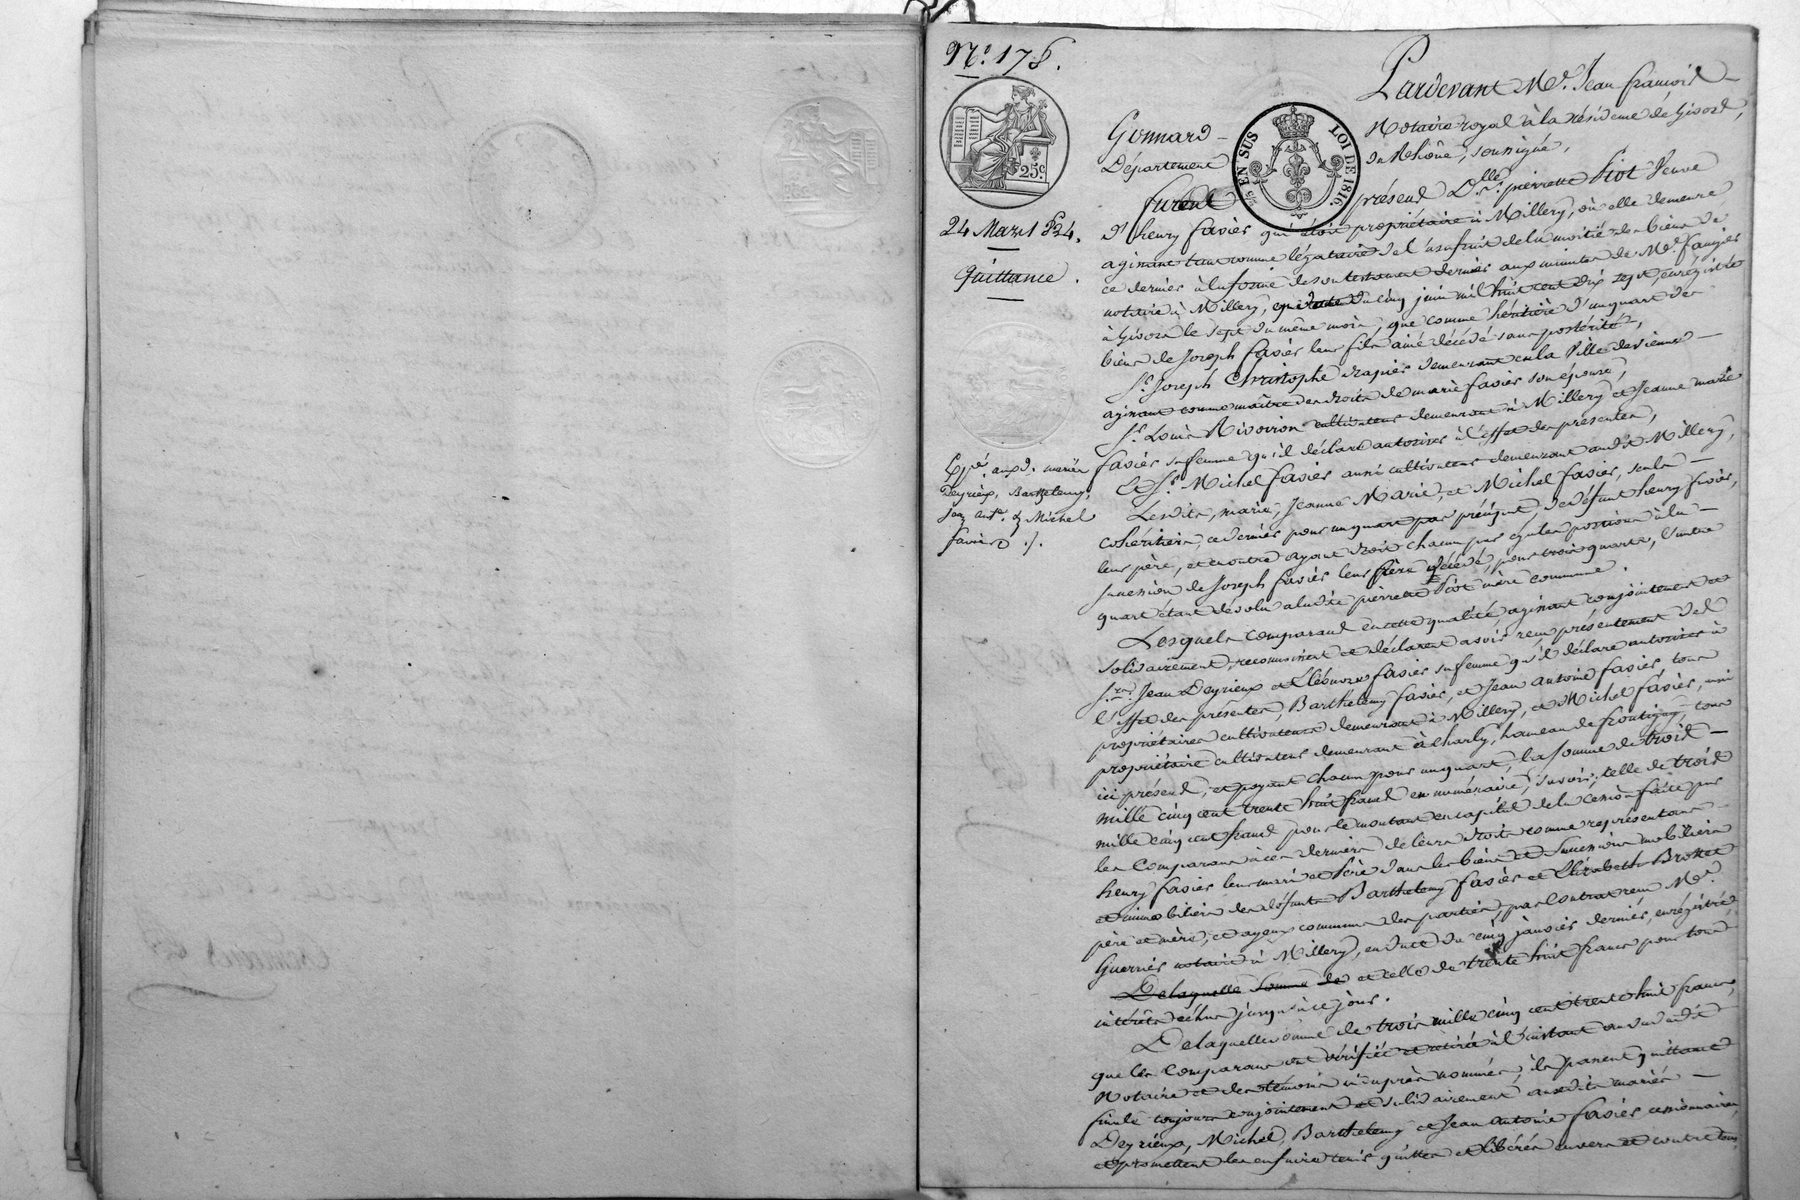 N.o 178.
25.c
24 Mars 1824.
Quittance.
Exp.é aux d. mariés
Deyrieux, Barthelemy,
Jean ant.e & Michel
favier
5/5 EN SUS LOI DE 1816.
Pardevant M.e Jean françois
Gonnard Notaire royal à la résidence de Givors,
Département du Rhône, soussigné,
furent présens D.lle pierrette Piot Veuve
d'henry favier qui étoit propriétaire à Millery, où elle demeure
agissant tant comme légataire de l'usufruit de la moitié des biens de
ce dernier à la forme de son testament dernier aux minutes de M.e faugier
notaire à Millery, du cinq juin mil huit cent dix sept, enregistré
à Givors le sept du même mois, que comme héritière d'un quart des
biens de Joseph favier leur fils ainé décédé sans postérité,
S.r Joseph Christophe drapier demeurant en la Ville de vienne
agissant comme maître des droits de marie favier son épouse,
S.r Louis Rivoiron cultivateur demeurant à Millery et Jeanne marie
favier sa femme qu'il déclare autoriser à l'effet des présentes,
Et S.r Michel favier aussi cultivateur demeurant audit Millery,
Lesdits, marie, Jeanne Marie, et Michel favier, seuls
cohéritiers, ce dernier pour un quart par préciput, de défunt henry favier,
leur père, et en outre ayant droit chacun par égales portions à la
succession de Joseph favier leur frère décédé, pour trois quarts, l'autre
quart étant dévolu à ladite pierrette Piot mère commune.
Lesquels comparans en cette qualité, agissant conjointement et
solidairement, reconnoissent et déclarent avoir reçu présentement des
S.rs Jean Deyrieux et Eléonore favier sa femme qu'il déclare autoriser à
l'effet des présentes, Barthelemy favier, et Jean antoine favier, tous
propriétaires cultivateurs demeurant à Millery, et Michel favier, aussi
propriétaire cultivateur demeurant à Charly, hameau de frontigny, tous
ici présens, et payant chacun pour un quart, la somme de trois
mille cinq cent trente huit francs en numéraire, savoir, celle de trois
mille cinq cent francs pour le montant en capital de la cession faite par
les comparans à ces derniers de leurs droits comme représentans
henry favier leur mari et père dans les biens et successions mobilières
et immobilières des défunts Barthelemy favier et Elizabeth Brottet
père et mère, et ayeux communs des parties, par contrat reçu M.e
Guerrier notaire à Millery, en date du cinq janvier dernier, enregistré,
De laquelle somme de et celle de trente huit francs pour tous
intérêts échus jusqu'à ce jour.
De laquelle somme de trois mille cinq cent trente huit francs,
que les comparans ont vérifiée et retirée à l'instant au vu dudit
Notaire et des témoins ci après nommés, ils passent quittance
finale toujours conjointement et solidairement auxdits mariés
Deyrieux, Michel, Barthelemy et Jean antoine favier cessionnaires,
et promettent les en faire tenir quittes et libérés envers et contre tous